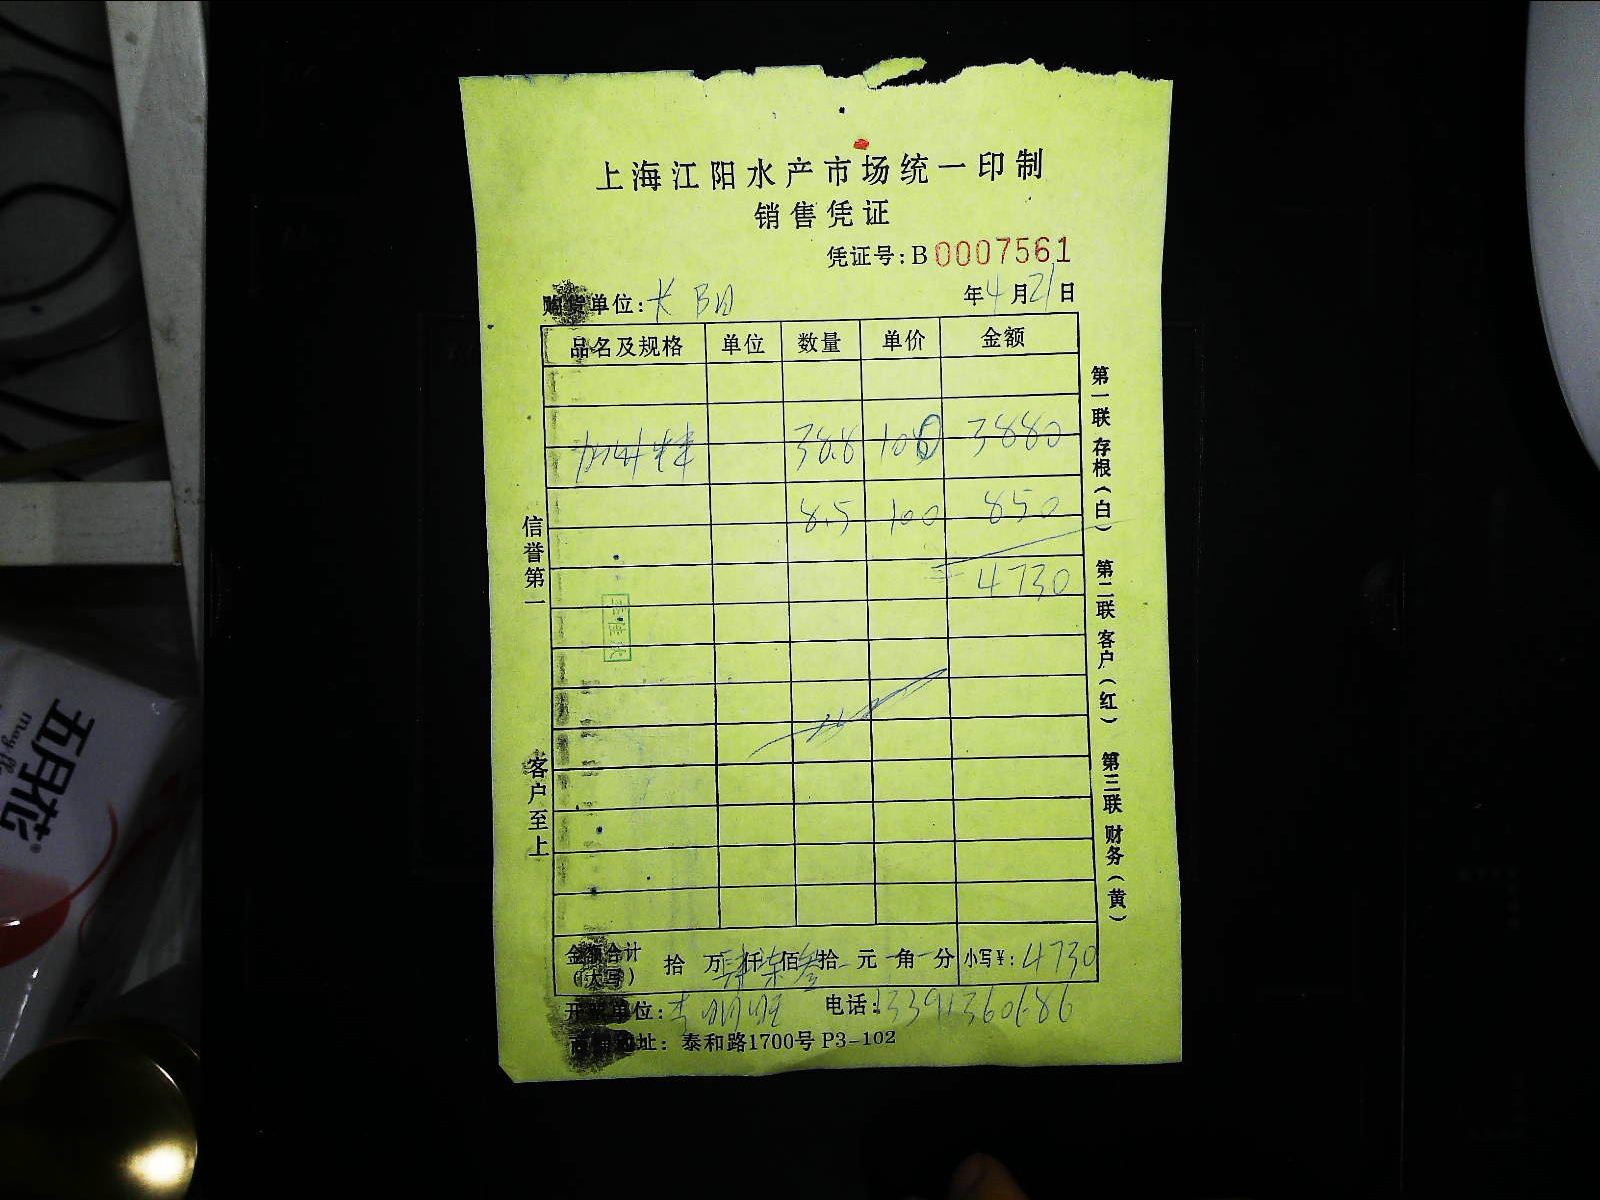 上海江阳水产市场统一印制
销售凭证
凭证号:B 0007561
购货单位: 年4月21日
品名及规格 单位 数量 单价 金额
38.8 100 3880
8.5 100 850
4730
金额合计(大写) 拾 万肆仟柒佰叁拾 元 角 分 小写¥: 4730
开票单位: 电话: 13391360686
地址: 泰和路1700号 P3-102
信誉第一
客户至上
第一联 存根(白) 第二联 客户(红) 第三联 财务(黄)
五月花